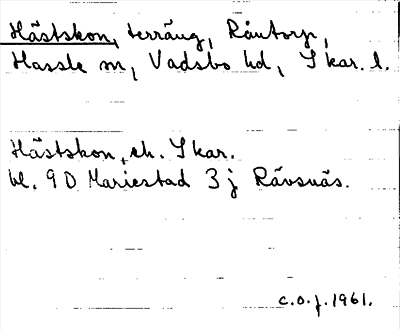 Hästskon, terräng, Råntorp,
Hassle sn, Vadsbo hd, Skar. l.
Hästskon, ek. Skar.
bl. 9 D Mariestad 3 j Rävsnäs.
c.o.f. 1961.